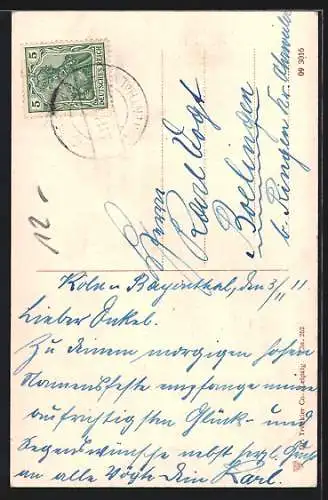 5 5
DEUTSCHES REICH
09 3016
Herrn
Karl Vogt
Boelingen
b. Ringen Kr. Ahrweiler
12-
Köln-Bayenthal, den 3/11 11
Lieber Onkel.
Zu deinem morgigen hohen
Namensfeste empfange meine
aufrichtigsten Glück- und
Segenswünsche nebst herzl. Gruß
an alle Vögte Dein Karl.
Trenkler Co., Leipzig No. 202